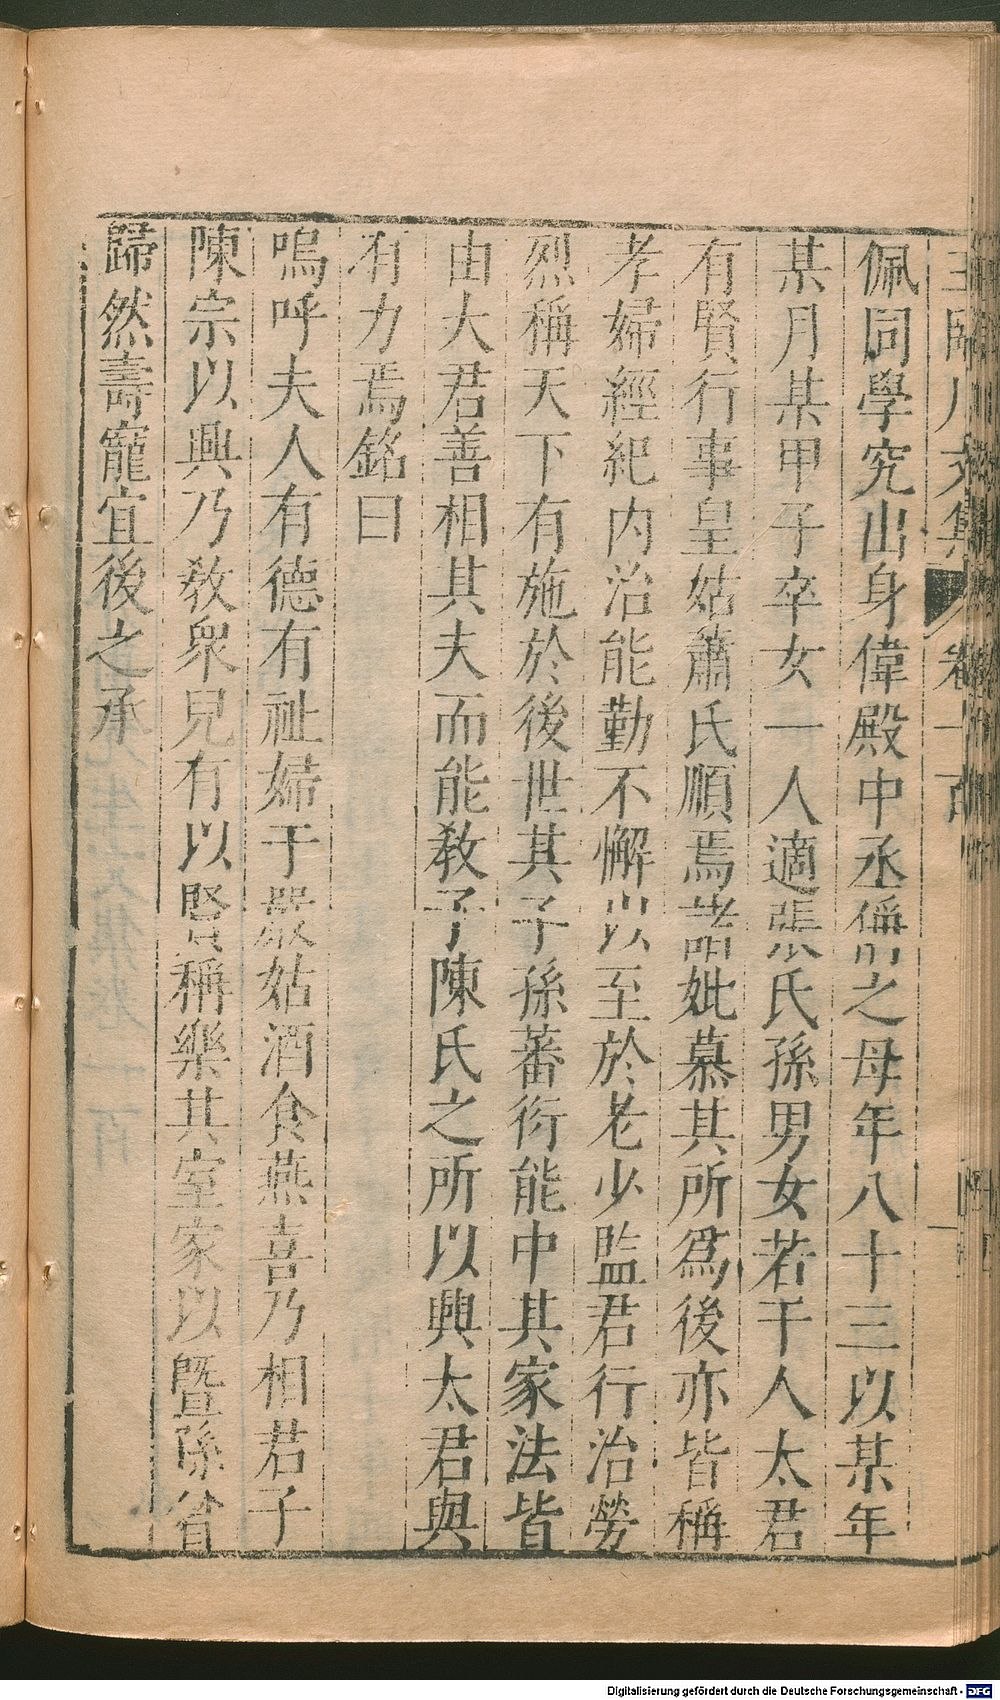 佩同學究出身偉殿中丞偁之母年八十三以某年
某月某甲子卒女一人適張氏孫男女若干人太君
有賢行事皇姑蕭氏順焉諸妣慕其所爲後亦皆稱
孝婦經紀内治能勤不懈以至於老少監君行治勞
烈稱天下有施於後世其子孫蕃衍能中其家法皆
由大君善相其夫而能敎子陳氏之所以興太君與
有力焉銘曰
嗚呼夫人有德有祉婦于嚴姑酒食燕喜乃相君子
陳宗以興乃敎衆兒有以賢稱樂其室家以暨孫曾
歸然壽寵宜後之承
Digitalisierung gefördert durch die Deutsche Forschungsgemeinschaft - DFG